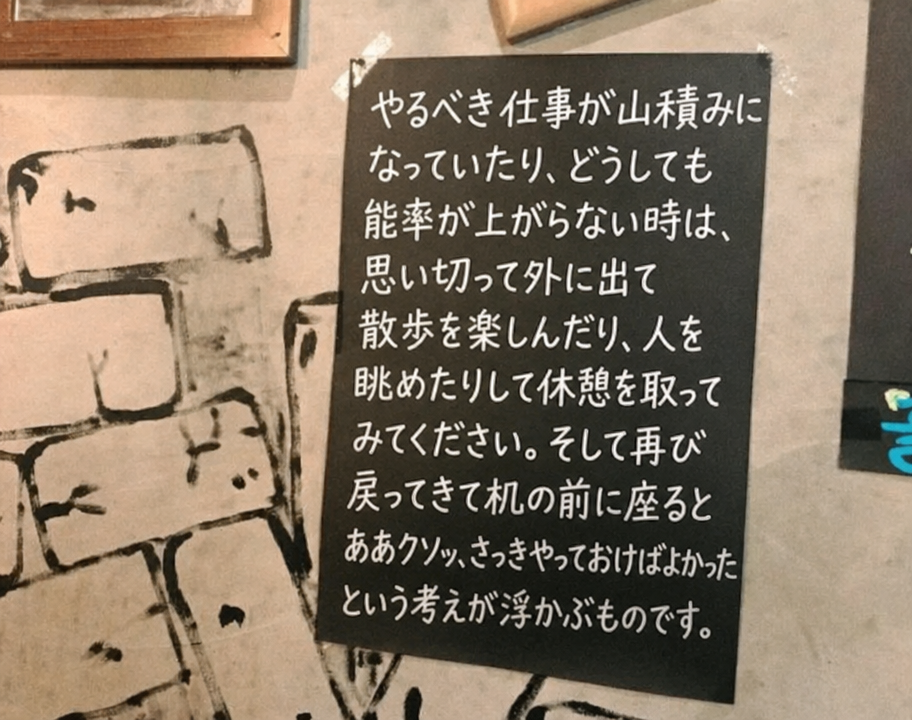 やるべき仕事が山積みに
なっていたり、どうしても
能率が上がらない時は、
思い切って外に出て
散歩を楽しんだり、人を
眺めたりして休憩を取って
みてください。そして再び
戻ってきて机の前に座ると
ああクソッ、さっきやっておけばよかった
という考えが浮かぶものです。